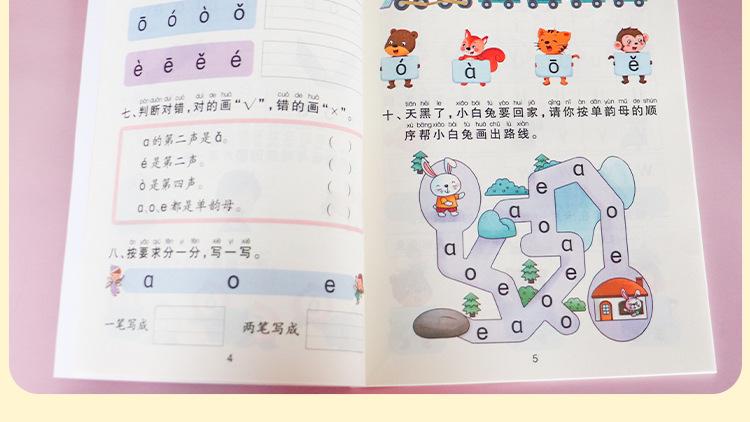 ō ó ò ǒ
è ē ě é
pàn duàn duì cuò duì de huà cuò de huà
七、判断对错，对的画“√”，错的画“×”。
ɑ的第二声是ǎ。 ( )
é是第二声。 ( )
ò是第四声。 ( )
ɑ、o、e都是单韵母。 ( )
àn yāo qiú fēn yì fēn xiě yì xiě
八、按要求分一分，写一写。
ɑ o e
一笔写成 两笔写成
4
ó à ō ě
tiān hēi le xiǎo bái tù yào huí jiā qǐng nǐ àn dān yùn mǔ de shùn
十、天黑了，小白兔要回家，请你按单韵母的顺
xù bāng xiǎo bái tù huà chū lù xiàn
序帮小白兔画出路线。
ɑ
e
ɑ o
o
ɑ ɑ
o e e
e o
e ɑ o
5